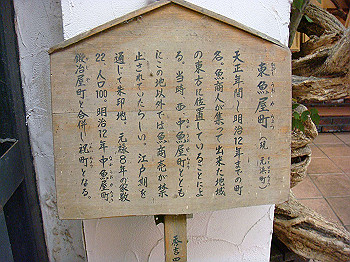 東魚屋町(現 元浜町)
ひがし うをや まち
天正年間〜明治12年までの町
名。魚商人が集って出来た地域
の東方に位置していることによ
る。当時 西・中魚屋町ととも
にこの地以外では魚商売が禁
止されていたらしい。江戸期を
通じて朱印地。元禄8年の家数
22 人口100。明治12年 中魚屋町、
鍛冶屋町と合併し祝町となる。